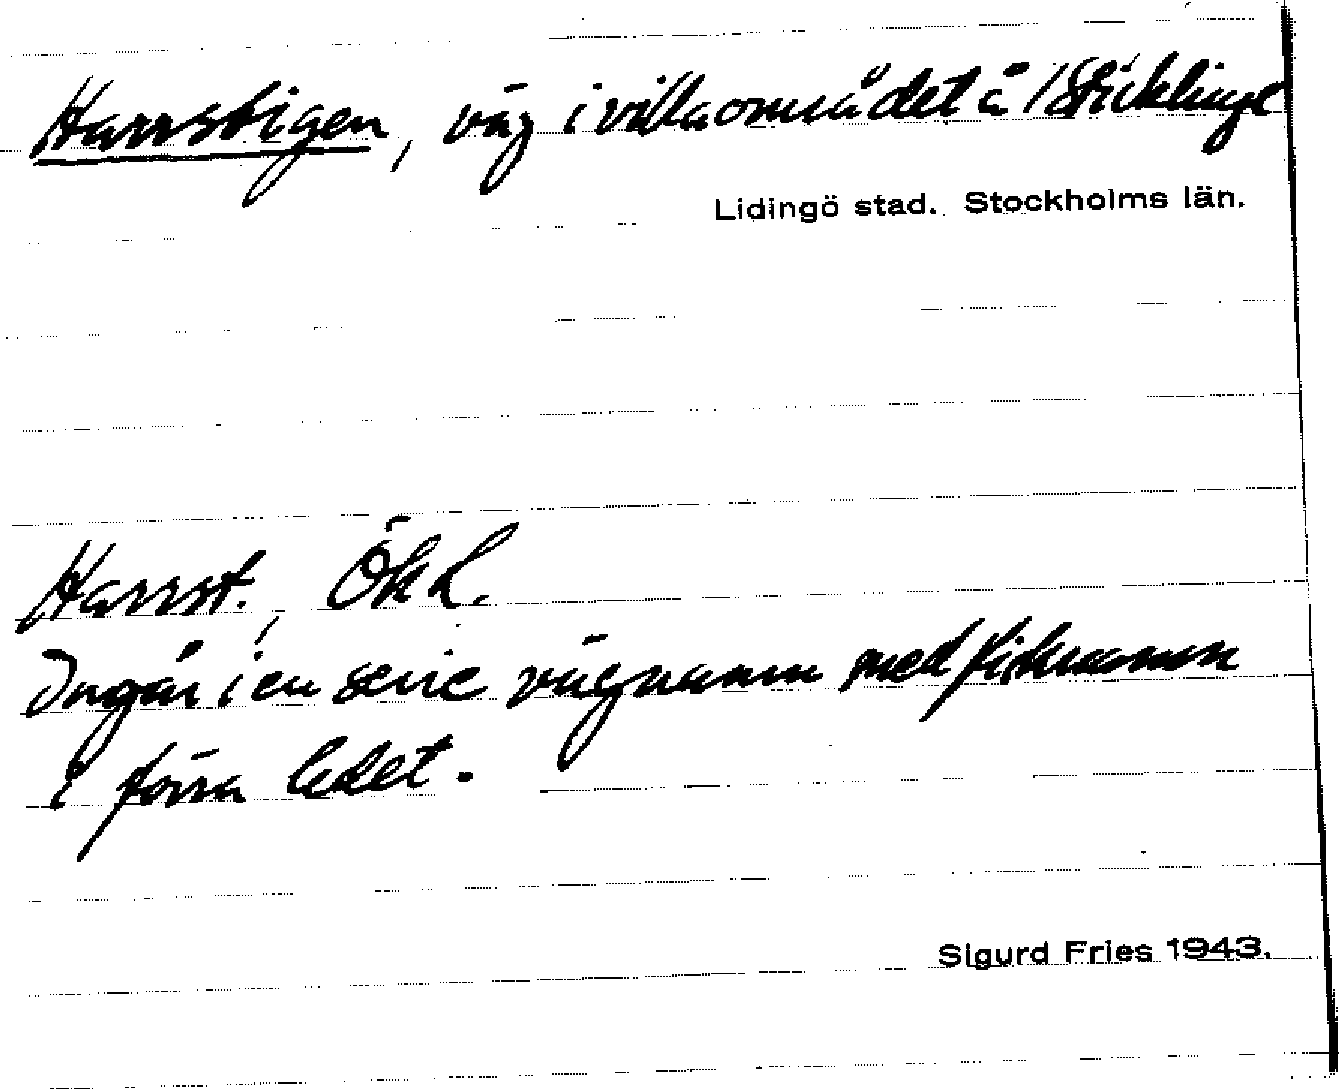 Harrstigen, väg i villaområdet å /Sticklinge
Lidingö stad. Stockholms län.
Harrst., ÖkL.
Ingår i en serie vägnamn med fisknamn
i förra ledet.
Sigurd Fries 1943.